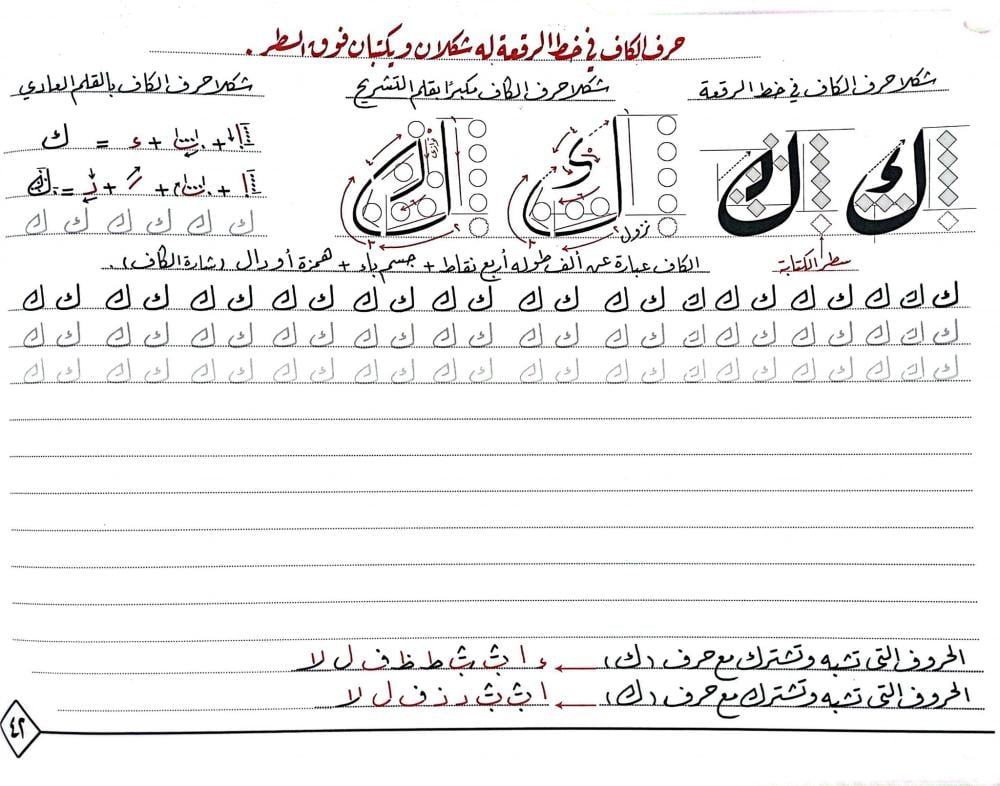 حرف الكاف في خط الرقعة له شكلان ويكتبان فوق السطر.
شكلا حرف الكاف في خط الرقعة
شكلا حرف الكاف مكبرًا بقلم التشريح
شكلا حرف الكاف بالقلم العادي
ك ك
نزول
سطر الكتابة
ا + ب + ء = ك
ك ك ك ك ك ك
الكاف عبارة عن ألف طوله أربع نقاط + جسم باء + همزة أو دال (شارة الكاف).
ك ك ك ك ك ك ك ك ك ك ك ك ك ك ك ك ك ك ك ك ك ك ك
ك ك ك ك ك ك ك ك ك ك ك ك ك ك ك ك ك ك ك ك ك ك ك
ك ك ك ك ك ك ك ك ك ك ك ك ك ك ك ك ك ك ك ك ك ك ك
الحروف التي تشبه وتشترك مع حرف (ك) ← ء ا ث ث ط ظ ف ل لا
الحروف التي تشبه وتشترك مع حرف (ك) ← ا ث ث د ذ ف ل لا
٤٢